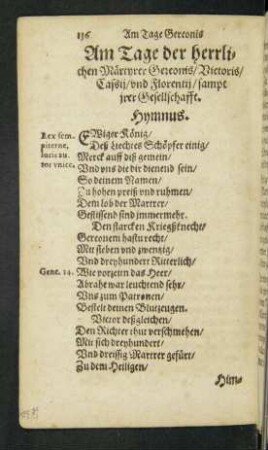 136 Am Tage Gereonis
Am Tage der herrli-
chen Märtyrer Gereonis/ Victoris/
Cassij/ vnd Florentij/ sampt
jrer Gesellschafft.
Hymnus.
Rex sem-
piterne,
lucis au-
tor vnice.
EWiger König/
Deß Liechtes Schöpfer einig/
Merck auff diß gemein/
Vnd vns die dir dienend sein/
So deinem Namen/
Zu hohen preiß vnd ruhmen/
Dem lob der Martrer/
Geflissend sind jmmermehr.
Den starcken Kriegßknecht/
Gereonem hastu recht/
Mit sieben vnd zwentzig/
Vnd dreyhundert Ritterlich/
Gene. 14. Wie vorzeitn das Heer/
Abrahe war leuchtend sehr/
Vns zum Patronen/
Bestelt deinen Blutzeugen.
Victor deßgleichen/
Den Richter thut verschmehen/
Mit sich dreyhundert/
Vnd dreissig Martrer gefürt/
Zu dem Heiligen/
Him-